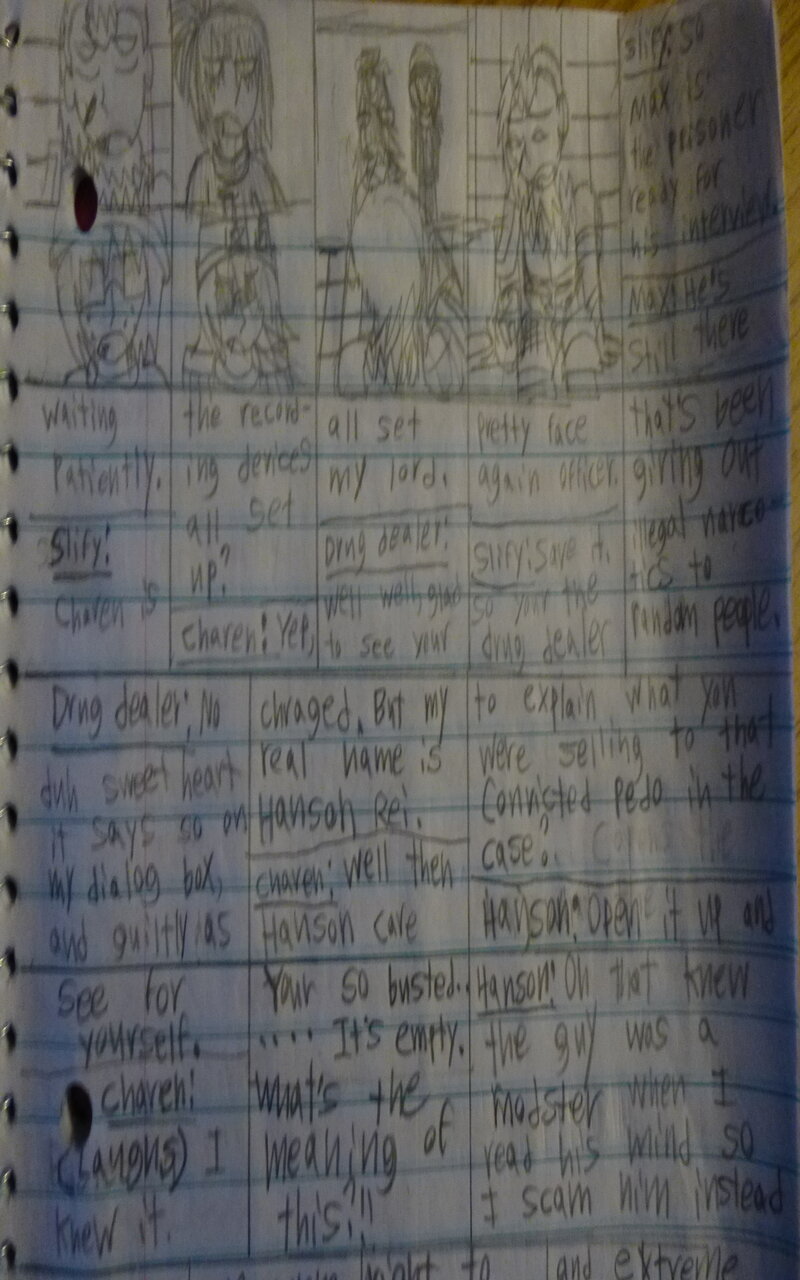 slify: So
Max is
the prisoner
ready for
his interview.
Max: He's
still there
waiting
Patiently.
Slify:
Charen is
the record-
ing devices
all set
up?
charen: Yep,
all set
my lord.
Drug dealer:
well well, glad
to see your
pretty face
again officer.
Slify: Save it.
so your the
drug dealer
that's been
giving out
illegal narco-
tics to
random people.
Drug dealer: No
duh sweet heart
it says so on
my dialog box,
and guiltly as
chraged. But my
real name is
Hanson Rei.
charen: Well then
Hanson care
to explain what you
were selling to that
Convisted pedo in the
case?
Hanson: Open it up and
see for
yourself.
charen:
(Laughs) I
knew it.
Your so busted..
.... It's empty.
What's the
meaning of
this?!!
Hanson: Oh that knew
the guy was a
modster when I
read his mind so
I scam him instead
to
and extreme